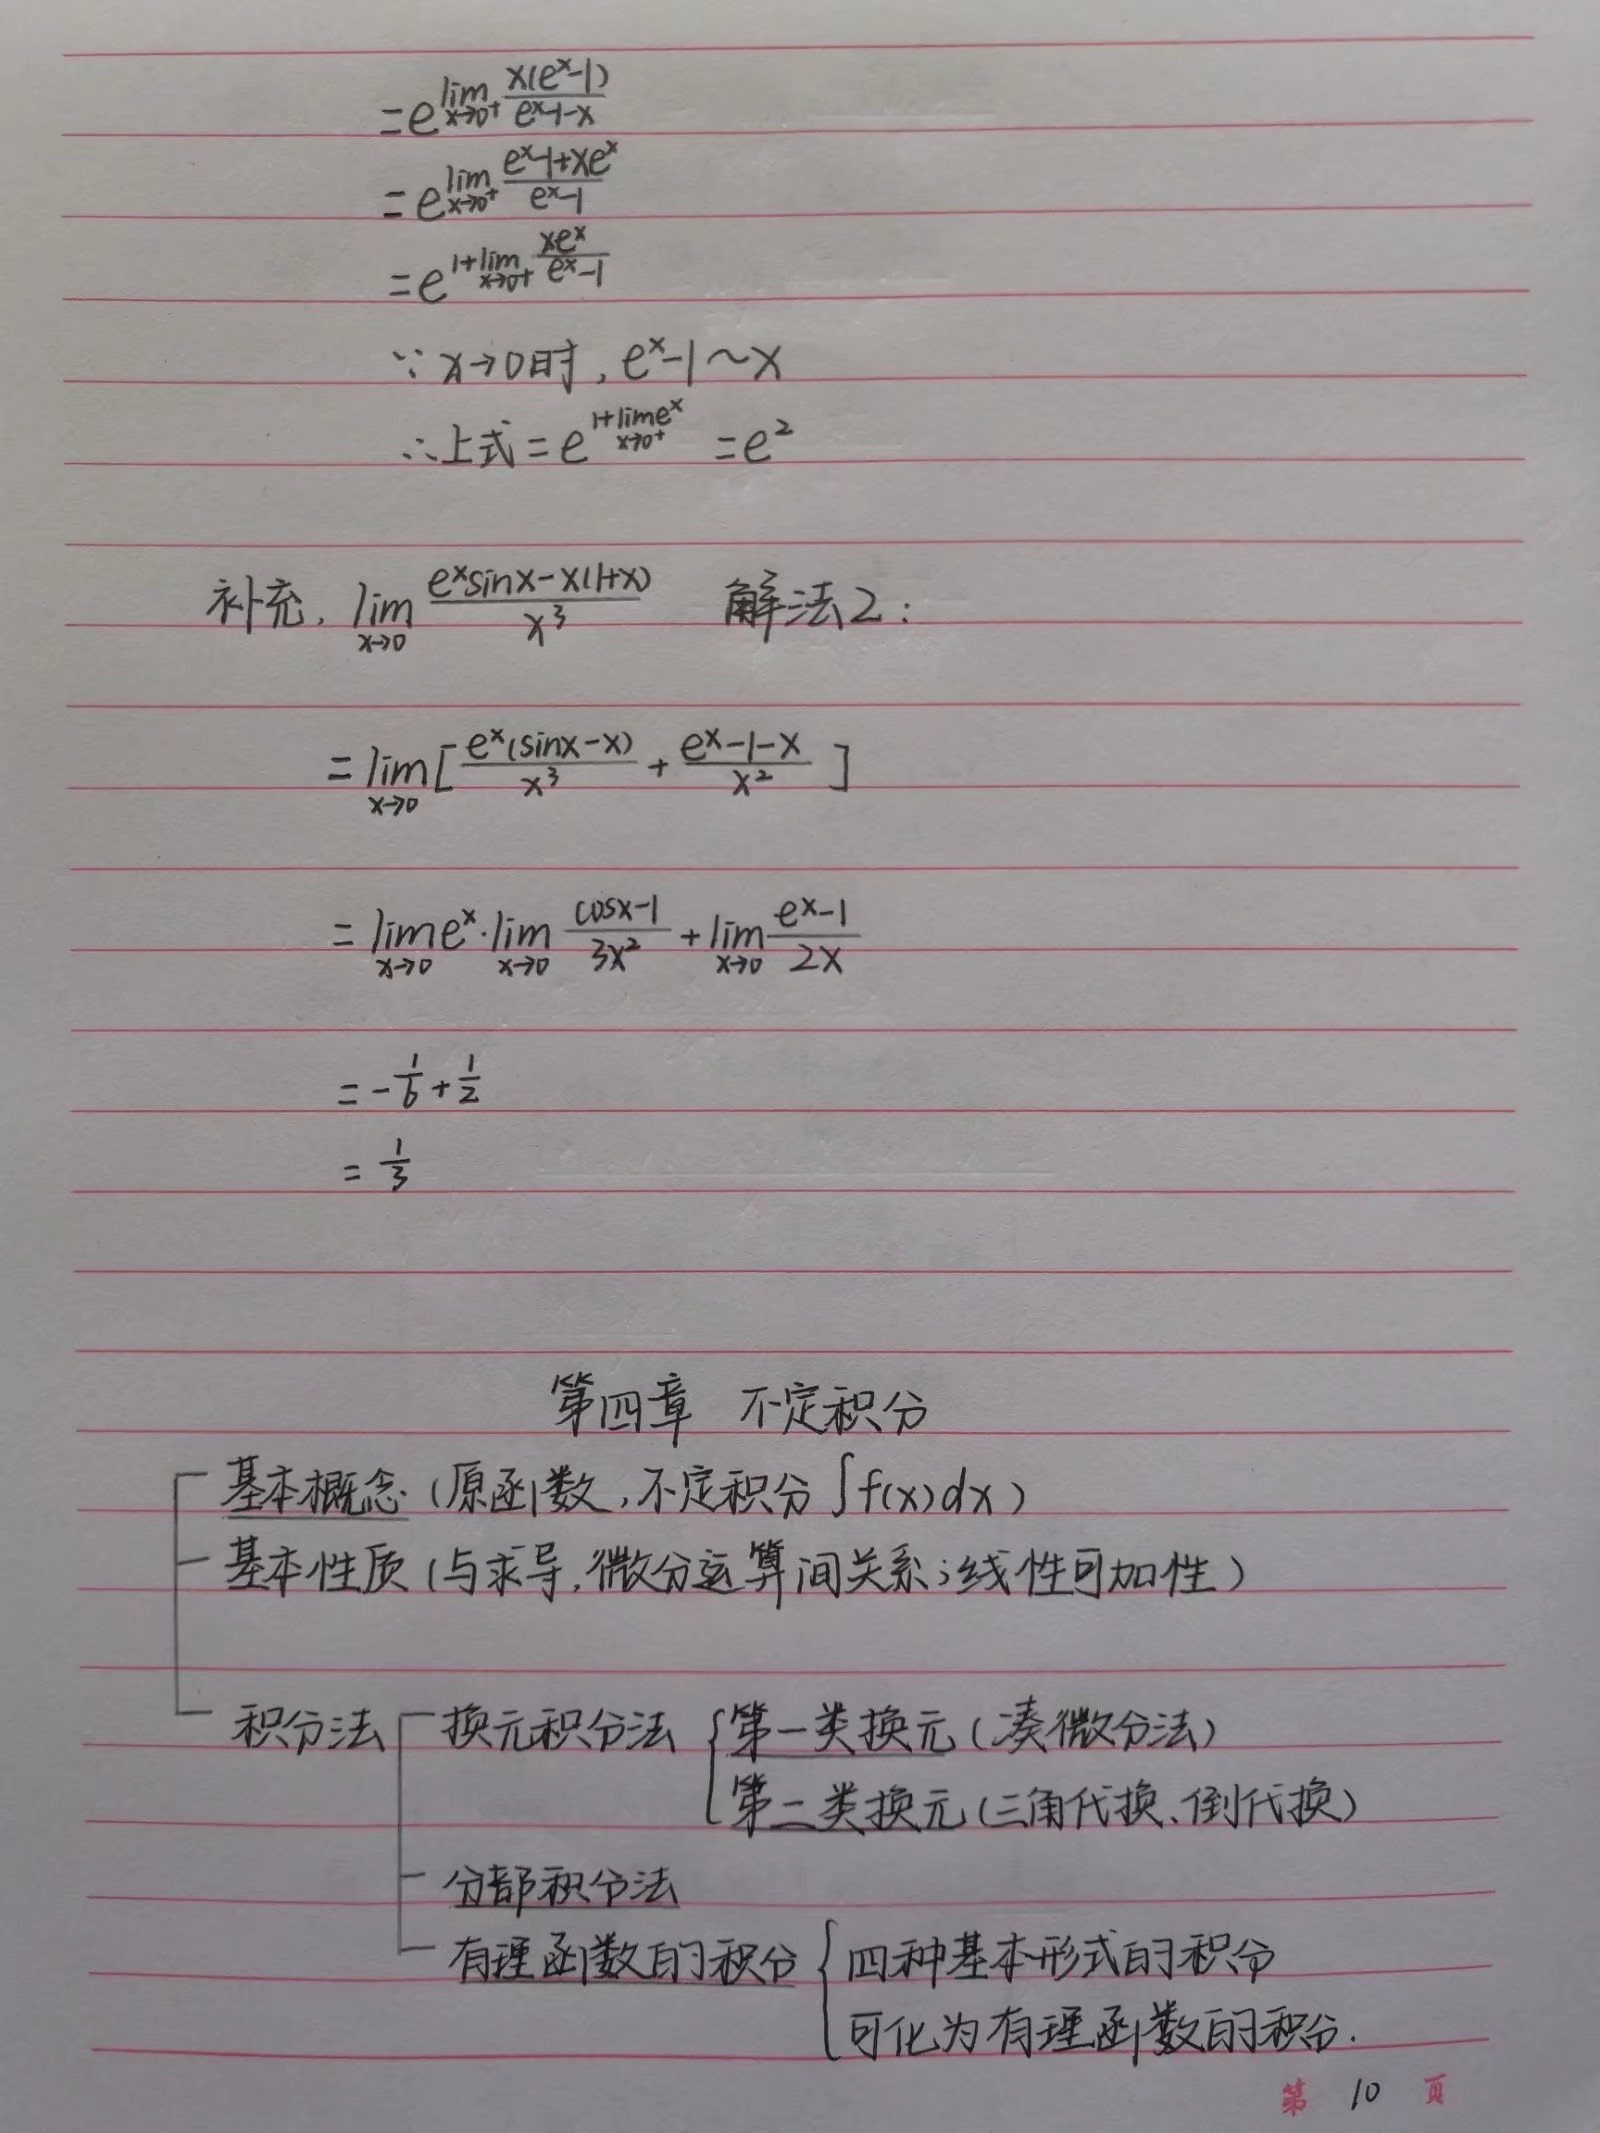 =e^{lim_{x→0+} \frac{x(e^x-1)}{e^x-1-x}}
=e^{lim_{x→0+} \frac{e^x-1+xe^x}{e^x-1}}
=e^{1+lim_{x→0+} \frac{xe^x}{e^x-1}}
∵ x→0时, e^x-1~x
∴上式=e^{1+lim_{x→0+} e^x} =e^2
补充. lim_{x→0} \frac{e^x sinx-x(1+x)}{x^3} 解法2:
=lim_{x→0}[\frac{e^x(sinx-x)}{x^3}+\frac{e^x-1-x}{x^2}]
=lim_{x→0} e^x·lim_{x→0} \frac{cosx-1}{3x^2}+lim_{x→0} \frac{e^x-1}{2x}
=-\frac{1}{6}+\frac{1}{2}
=\frac{1}{3}
第四章 不定积分
基本概念(原函数,不定积分∫f(x)dx)
基本性质(与求导,微分运算间关系;线性可加性)
积分法 换元积分法 {第一类换元(凑微分法)
第二类换元(三角代换、倒代换)
分部积分法
有理函数的积分 {四种基本形式的积分
可化为有理函数的积分.
第 10 頁